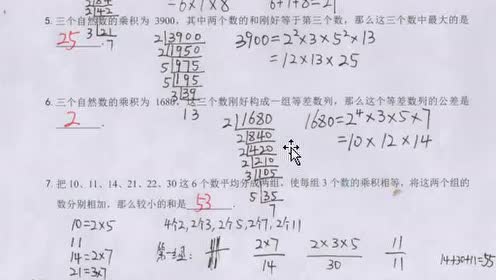 2 42
3 21
7
= 6×1×8
6+1+8=21
5. 三个自然数的乘积为 3900，其中两个数的和刚好等于第三个数，那么这三个数中最大的是
25 .
2 3900
2 1950
5 975
5 195
3 39
13
3900=2²×3×5²×13
=12×13×25
6. 三个自然数的乘积为 1680，这三个数刚好构成一组等差数列，那么这个等差数列的公差是
2 .
2 1680
2 840
2 420
2 210
3 105
5 35
7
1680=2⁴×3×5×7
=10×12×14
7. 把 10、11、14、21、22、30 这 6 个数平均分成两组，使每组 3 个数的乘积相等，将这两个组的
数分别相加，那么较小的和是 53 .
10=2×5
11
14=2×7
21=3×7
4个2, 2个3, 2个5, 2个7, 2个11
第一组:
2×7
14
2×3×5
30
11
11
14+30+11=55